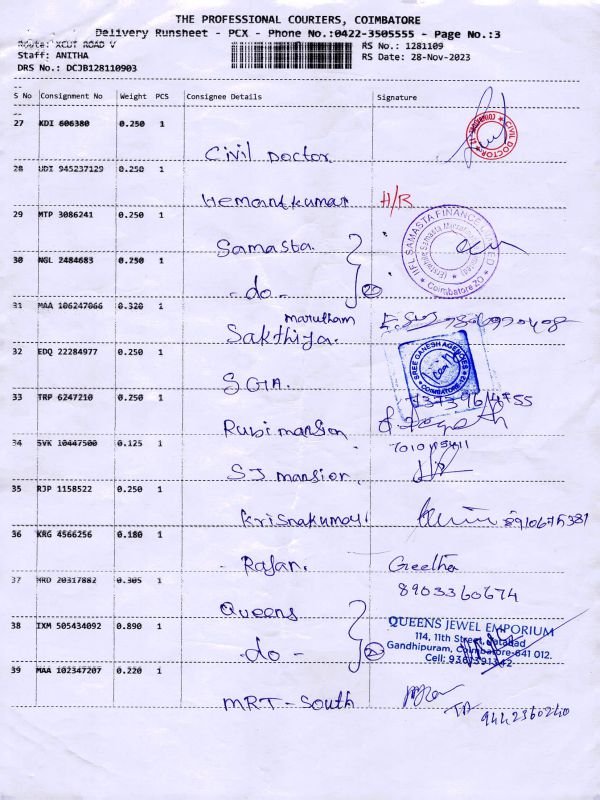 THE PROFESSIONAL COURIERS, COIMBATORE
Delivery Runsheet - PCX - Phone No.:0422-3505555 - Page No.:3
Route: XCUT ROAD V
RS No.: 1281109
Staff: ANITHA
RS Date: 28-Nov-2023
DRS No.: DCJB128110903
S No Consignment No Weight PCS Consignee Details Signature
27 KDI 606380 0.250 1
Civil Doctor
CIVIL DOCTOR
28 UDI 945237129 0.250 1
Hemantkumar H/R
29 MTP 3086241 0.250 1
Samasta
IIFL SAMASTA FINANCE LIMITED
Coimbatore 20
30 NGL 2484683 0.250 1
- do - 2
31 MAA 106247066 0.320 1
marutham
Sakthiya.
32 EDQ 22284977 0.250 1
SGA.
SREE GANESH AGENCIES
COIMBATORE-12
33 TRP 6247210 0.250 1
Rubi mansion
34 SVK 10447500 0.125 1
SJ mansion.
35 RJP 1158522 0.250 1
Krisnakumar
36 KRG 4566256 0.180 1
Rajan. Geetha
8903360674
37 HRO 20317882 0.305 1
Queens
QUEENS JEWEL EMPORIUM
114, 11th Street,
Gandhipuram, Coimbatore-641 012.
Cell: 9367391342
38 IXM 505434092 0.890 1
- do - 2
39 MAA 102347207 0.220 1
MRT - South
9442360240